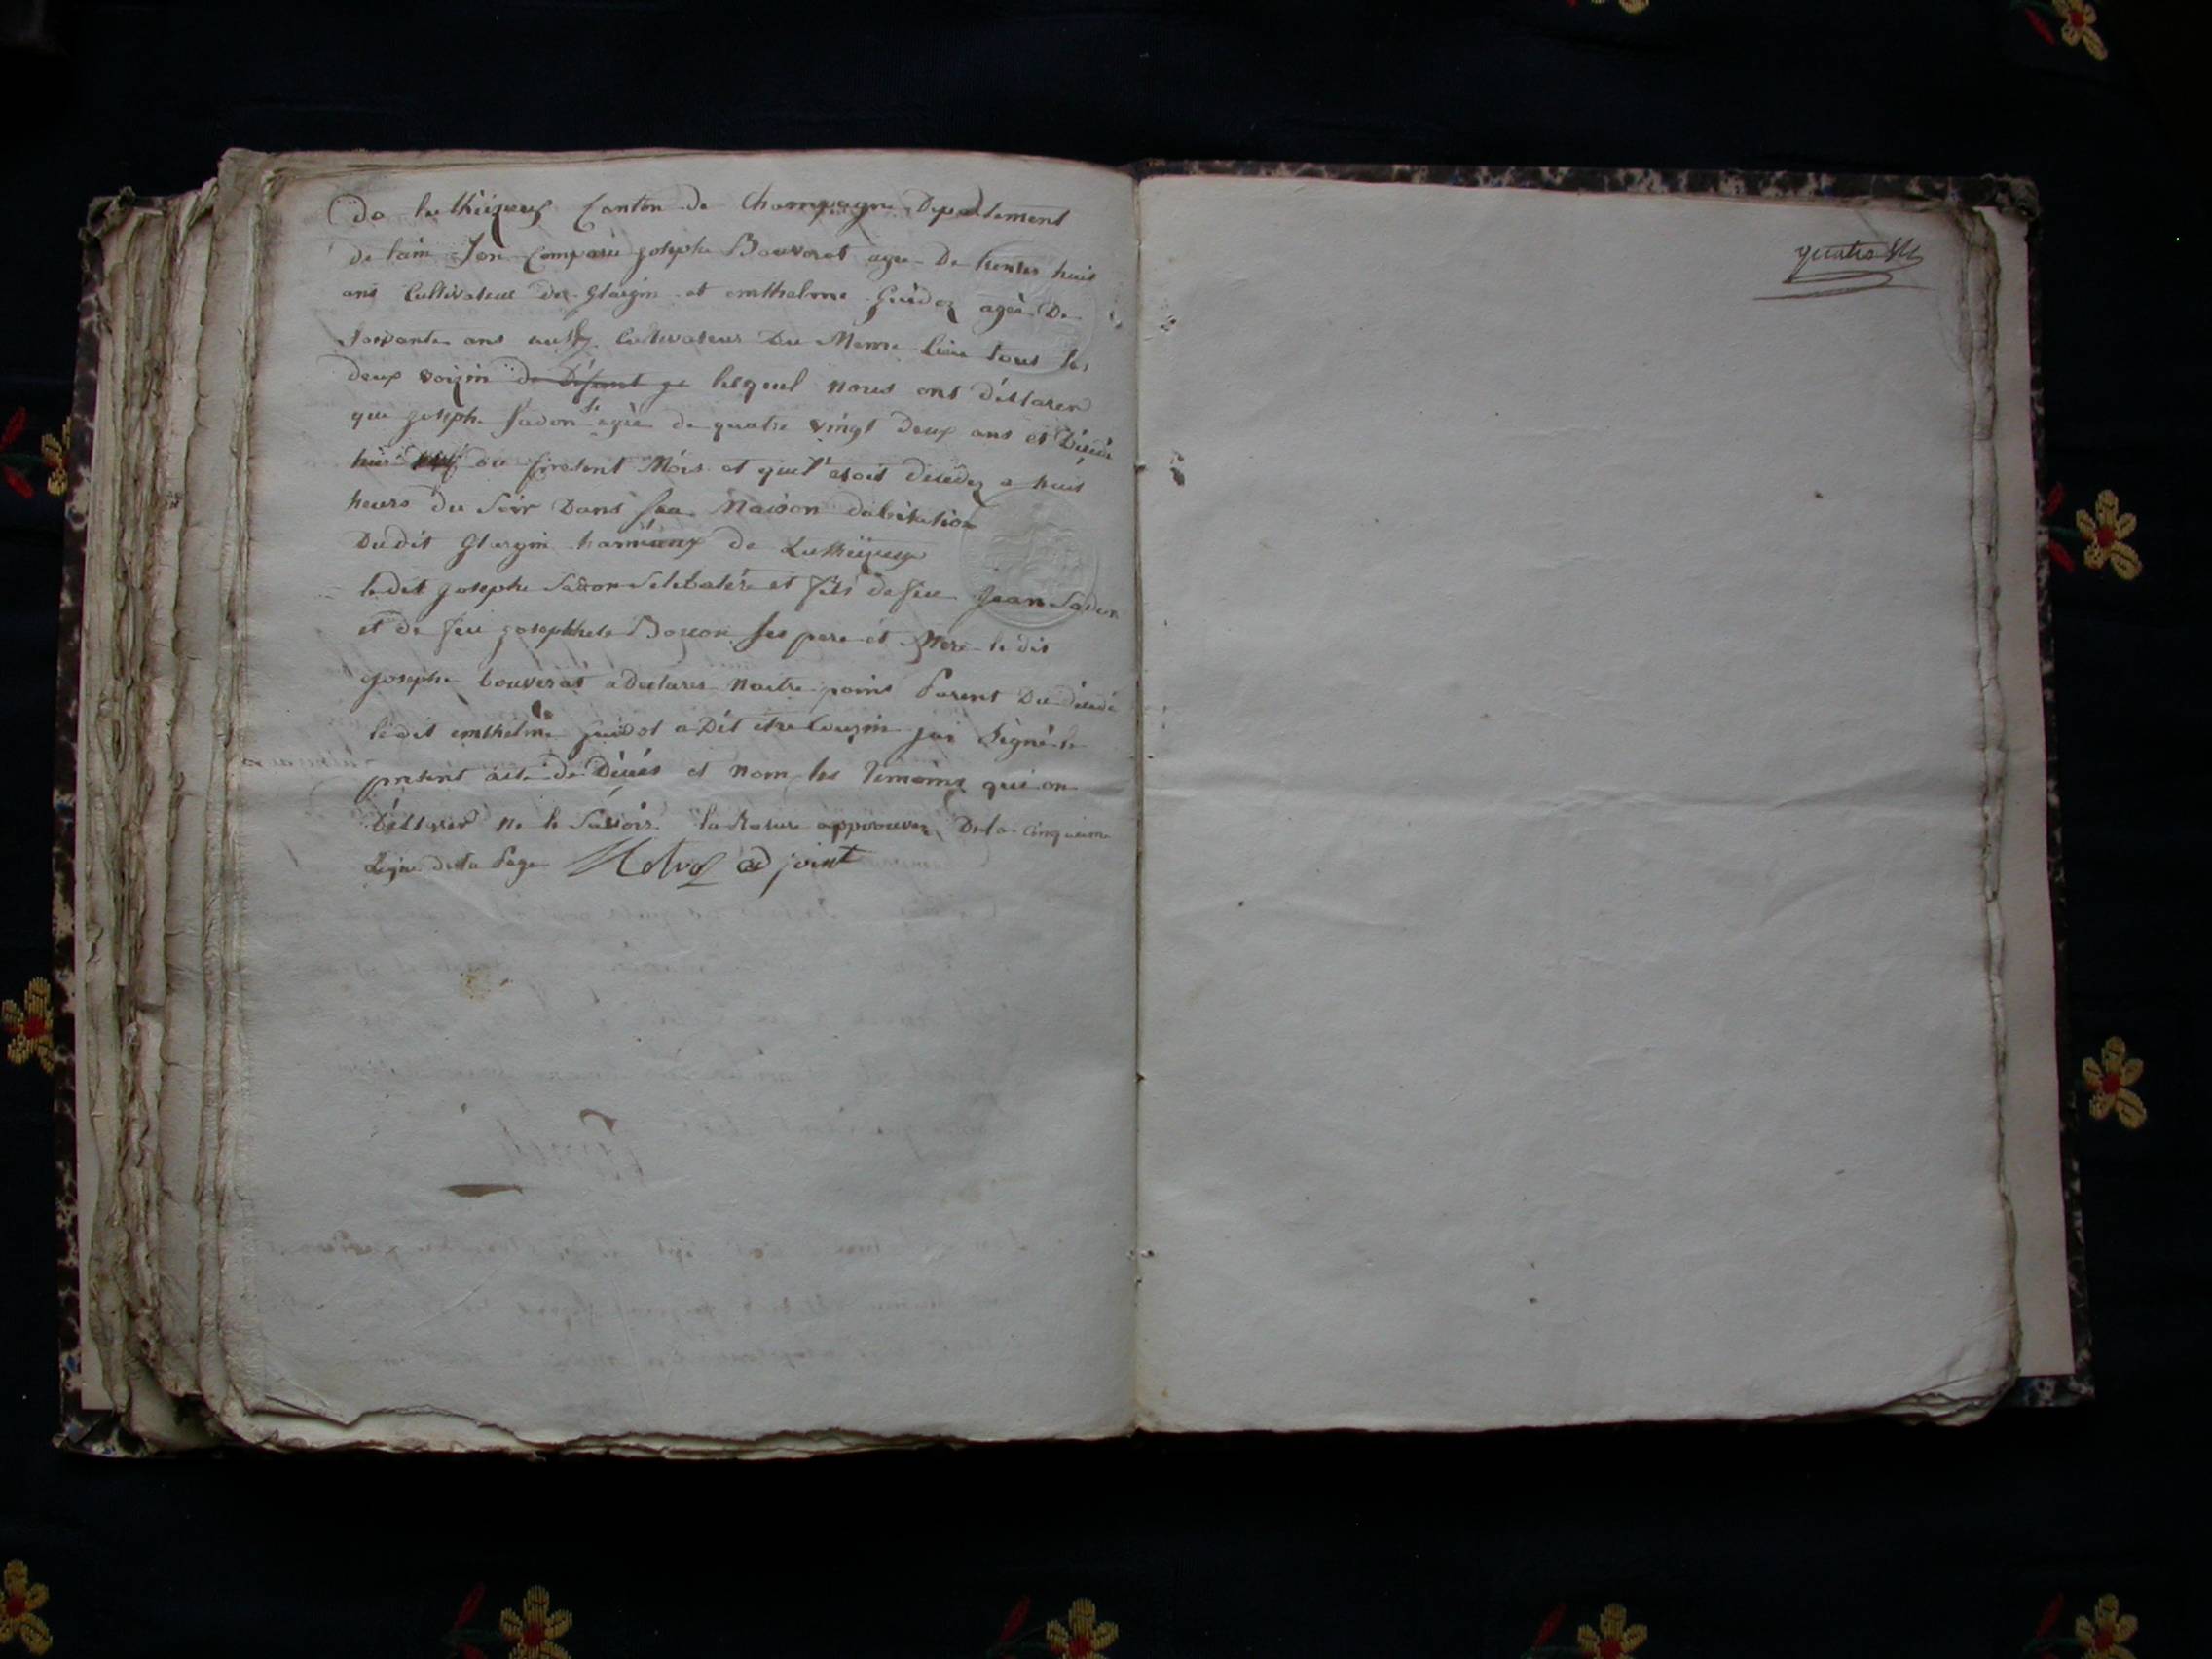 de lutheizieux Canton de Champagne Departement
de lain Son Comparü joseph Bouverat agé De trentes huis
ans Cultivateur de Glargin et emthelme Guidoz agée De
soixante ans aussy Cultivateur Du Meme Lieu tous les
deux voizin de Défunt ge lesquel nous ont déclarer
que joseph Sadon agée de quatre vingt deux ans et Décédé
huis du present Mois et quel etoit décédez a huis
heure du Soir Dans saa Maison dabitation
Dudit Glargin hammaux de Lutheizieux
ledit joseph Sadon Selebatére et fils de feu Jean Sadon
et de feu josephete Bozon ses pere et Mere le dit
joseph bouverat a declarer naitre poins Parent Du décedé
ledit emthelme Guidot a Dit etre Couzin jai Signé le
present acte de Décés et nom les temoins qui on
Déclarer ne le Savoir la Rature approuvez De la Cinquieme
Ligne de la Page adjoint
quatre